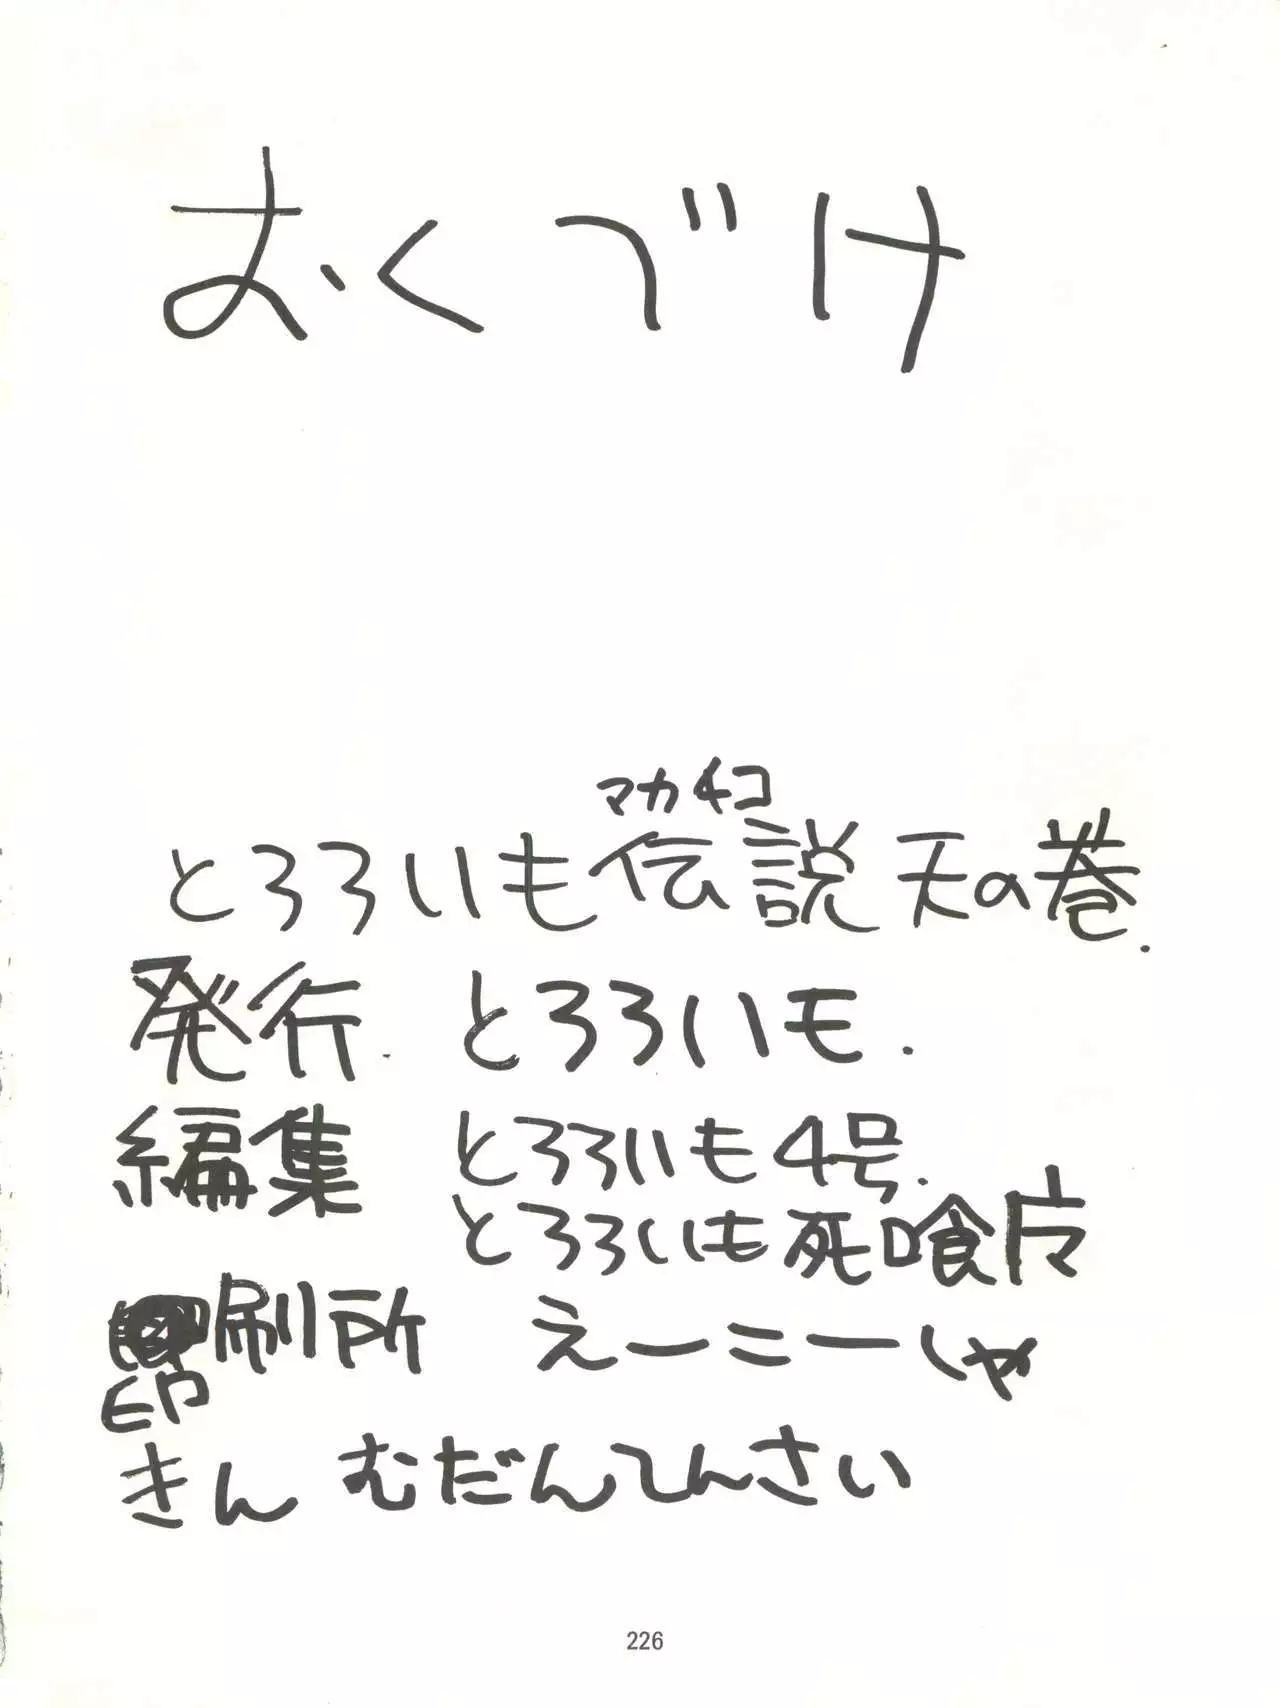 おくづけ
マカチコ
とろろいも伝説天の巻.
発行. とろろいも.
編集 とろろいも4号.
とろろいも死喰
刷所 えーこーしゃ
印
きん むだんてんさい
226